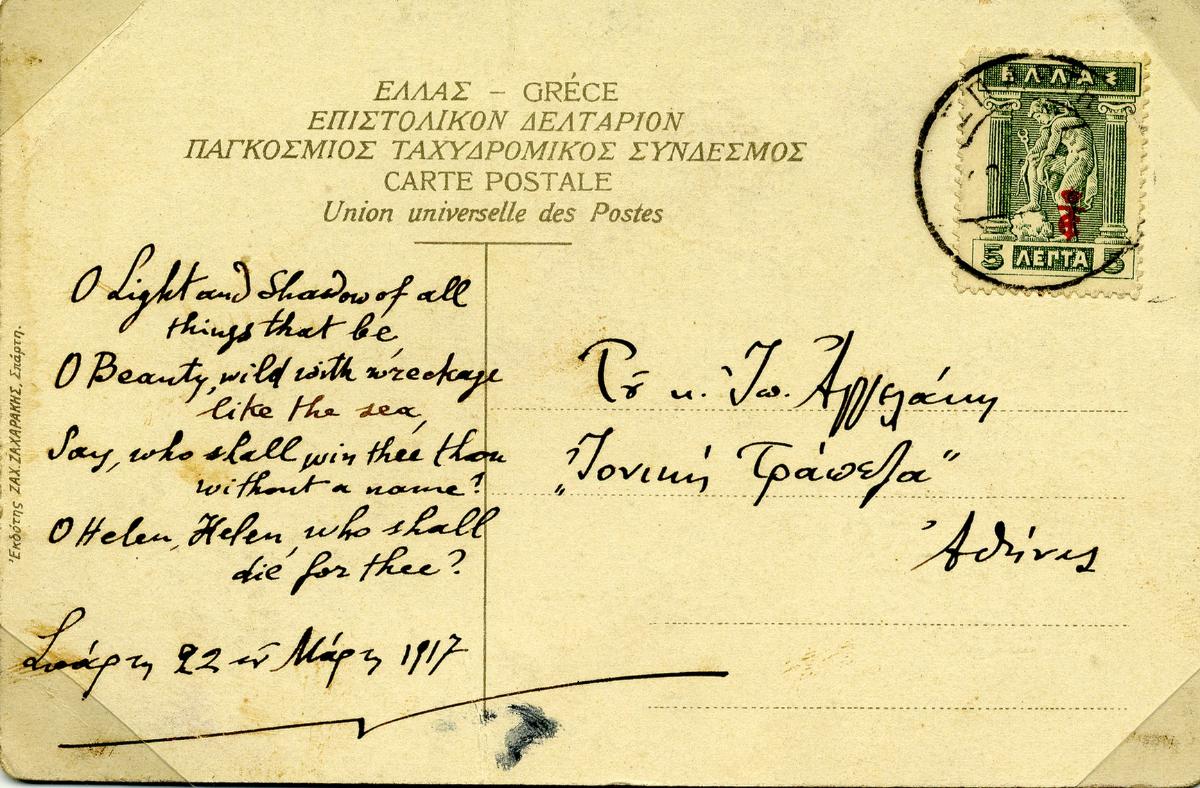 ΕΛΛΑΣ – GRÉCE
ΕΠΙΣΤΟΛΙΚΟΝ ΔΕΛΤΑΡΙΟΝ
ΠΑΓΚΟΣΜΙΟΣ ΤΑΧΥΔΡΟΜΙΚΟΣ ΣΥΝΔΕΣΜΟΣ
CARTE POSTALE
Union universelle des Postes
ΕΛΛΑΣ
5 ΛΕΠΤΑ 5
O Light and Shadow of all
things that be,
O Beauty, wild with wreckage
like the sea,
Say, who shall win thee thou
without a name?
O Helen, Helen, who shall
die for thee?
Σπάρτη 22 Μάρτη 1917
κ. Ἰω. Ἀγγελάκη
„Ἰονικὴ Τράπεζα"
Ἀθήνας
Ἐκδότης ΖΑΧ. ΖΑΧΑΡΑΚΗΣ, Σπάρτη.